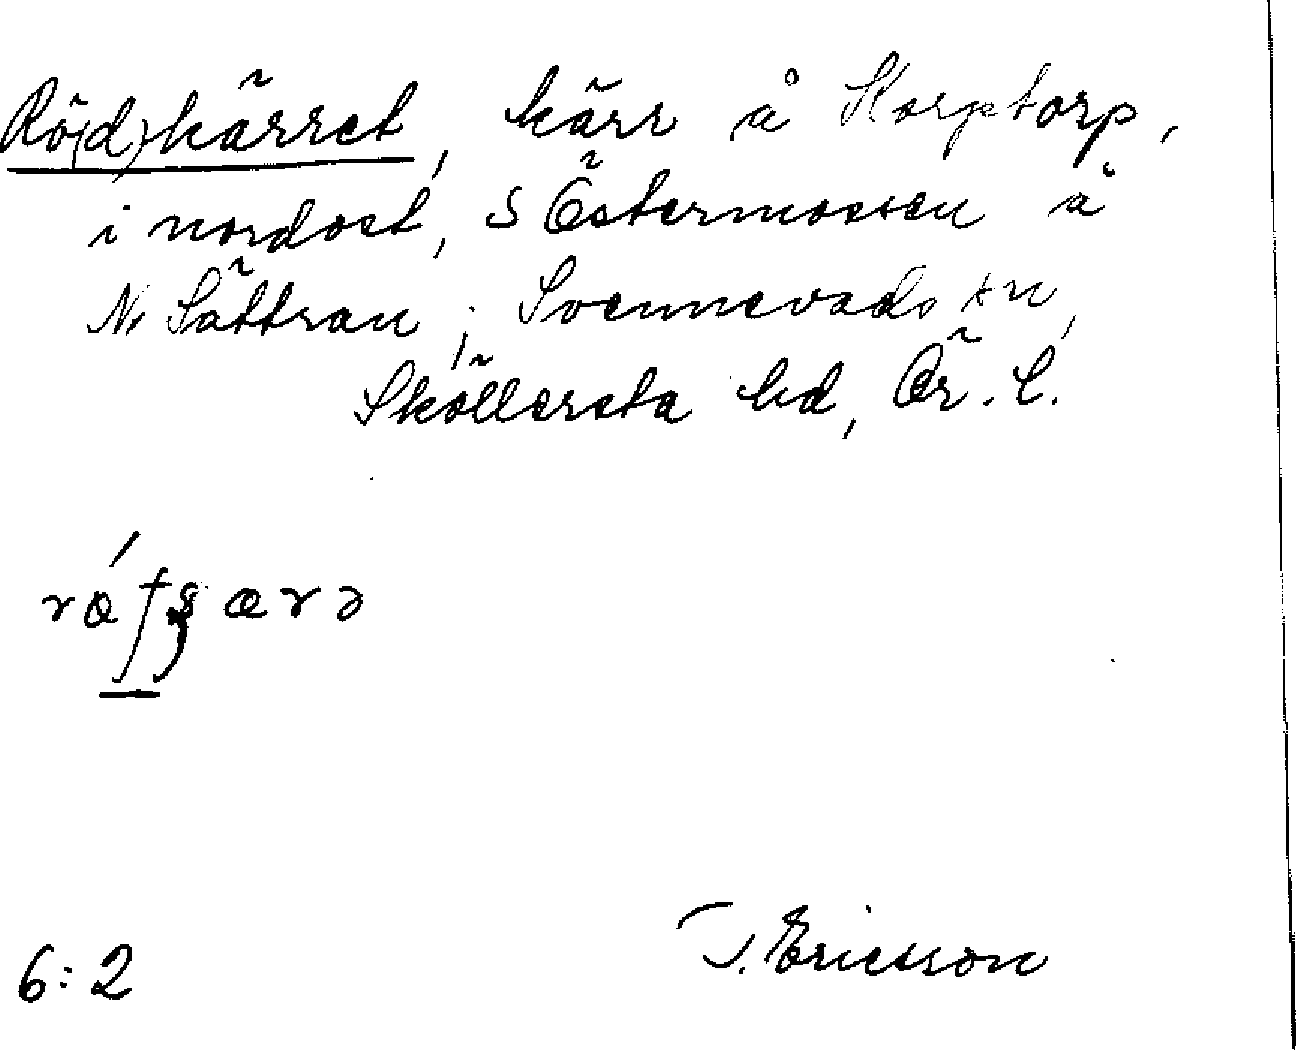 Rö(d)kärret, kärr å Korptorp,
i nordost, S Östermossen å
N. Sättran; Svennevads sn,
Sköllersta hd, Ör. l.
6:2
T. Ericsson